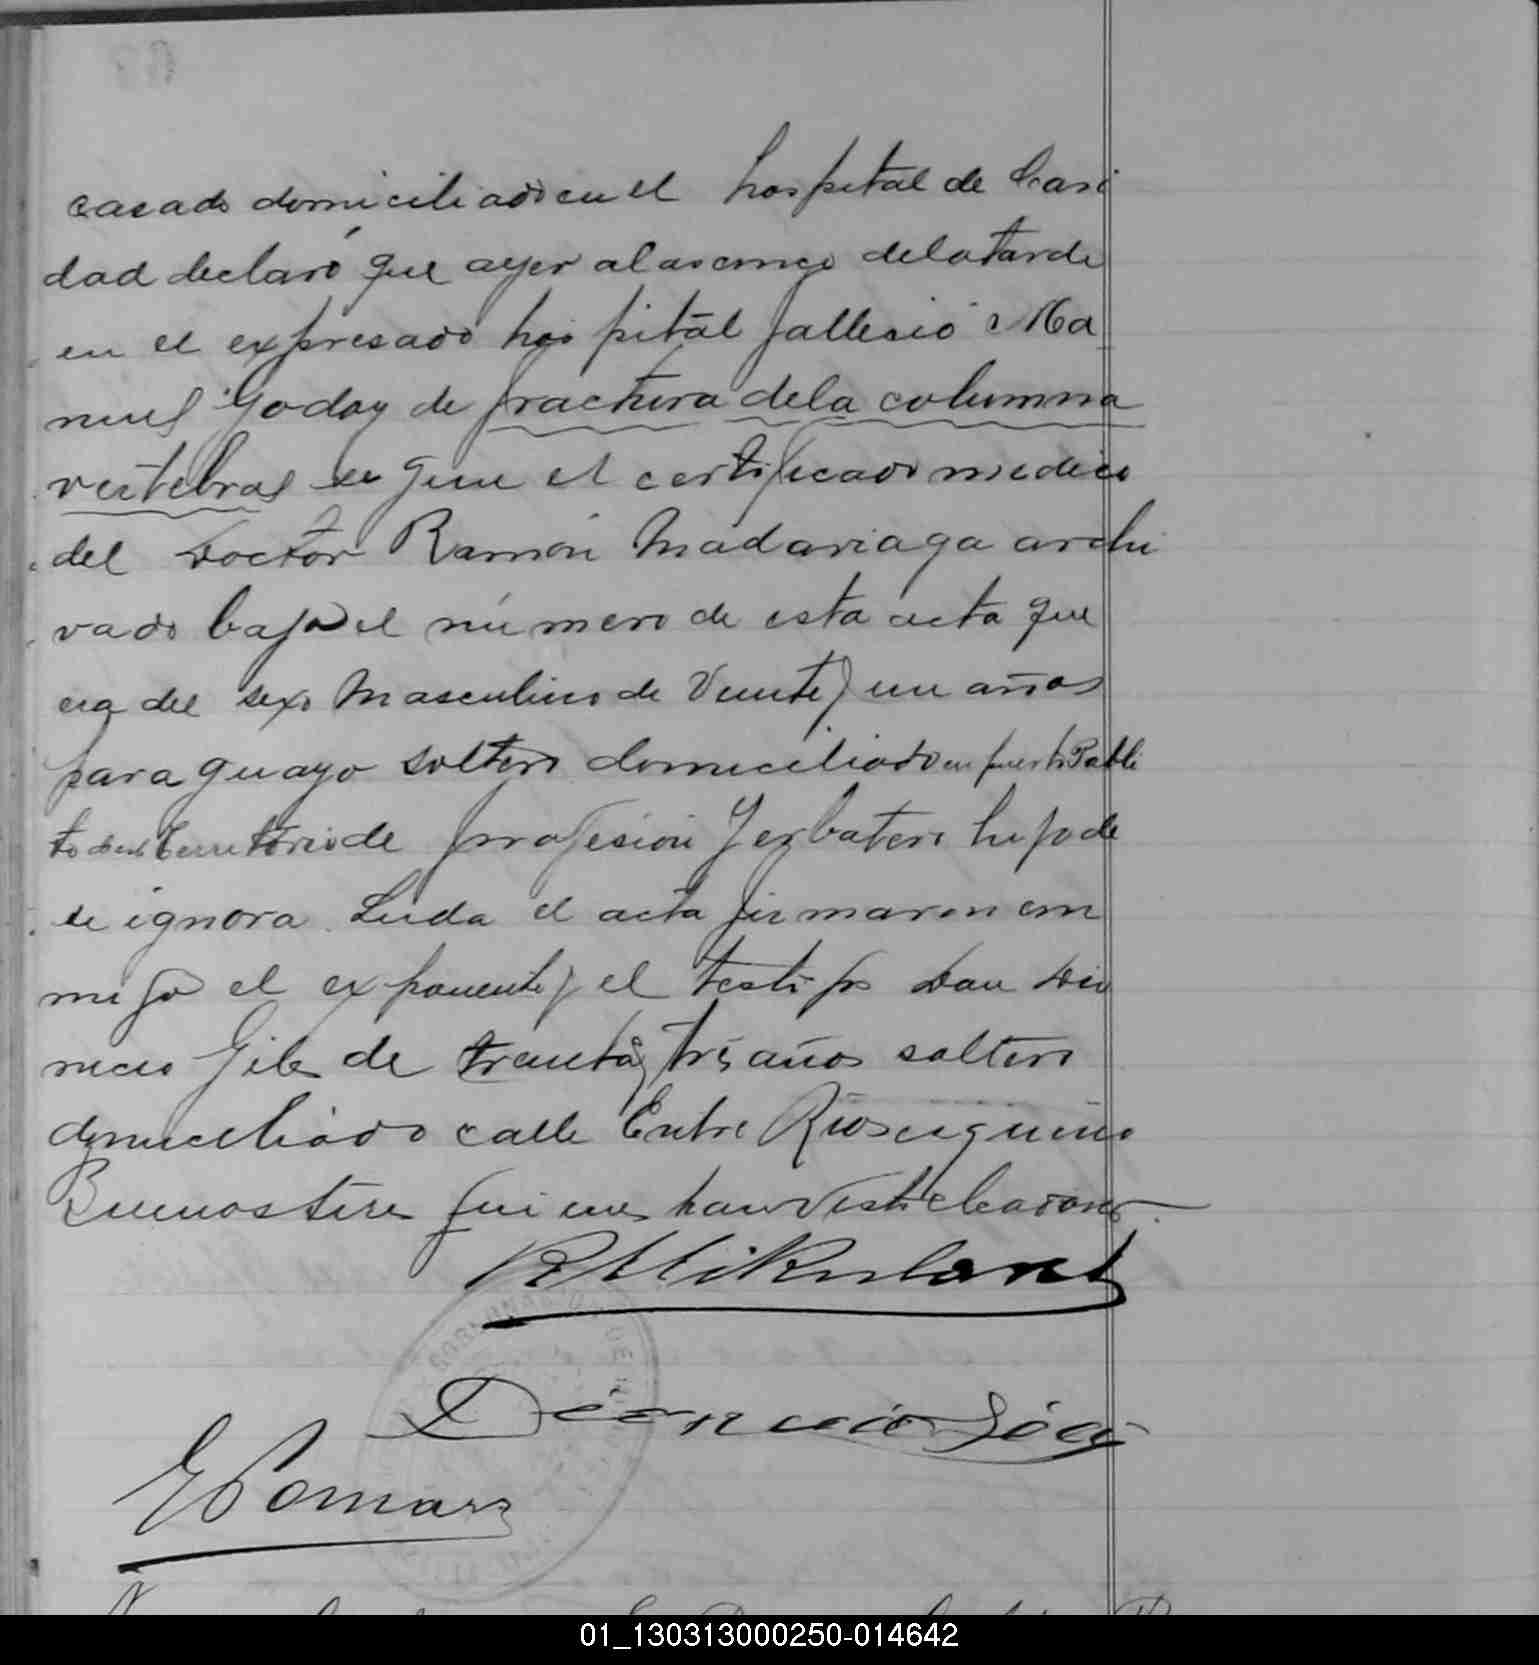 casado domiciliado en el hospital de Cari
dad declaró que ayer a las cinco de la tarde
en el expresado hospital fallecio Ma
nuel Godoy de fractura de la columna
vertebral segun el certificado medico
del Doctor Ramón Madariaga archi
vado bajo el número de esta acta que
era del sexo masculino de veinte y un años
paraguayo soltero domiciliado en puerto Pabli
to de este territorio de profesión Yerbatero hijo de
se ignora. Leida el acta firmaron con
migo el exponente y el testigo Don Dio
nicio Gile de treinta y tres años soltero
domiciliado calle Entre Rios esquina
Buenos Aires quienes han visto el cadaver
Dionicio
E Pomar
01_130313000250-014642